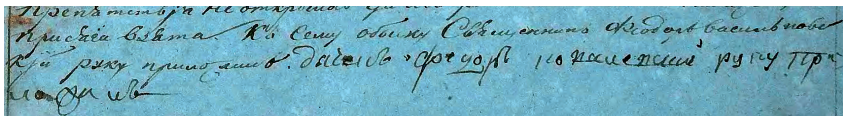 Препятствїя не открылось
присяга взята. Къ сему обыску Священникъ Ѳеодоръ Васильковс
кїй руку приложилъ. дячекъ Федоръ руку при
ложилъ